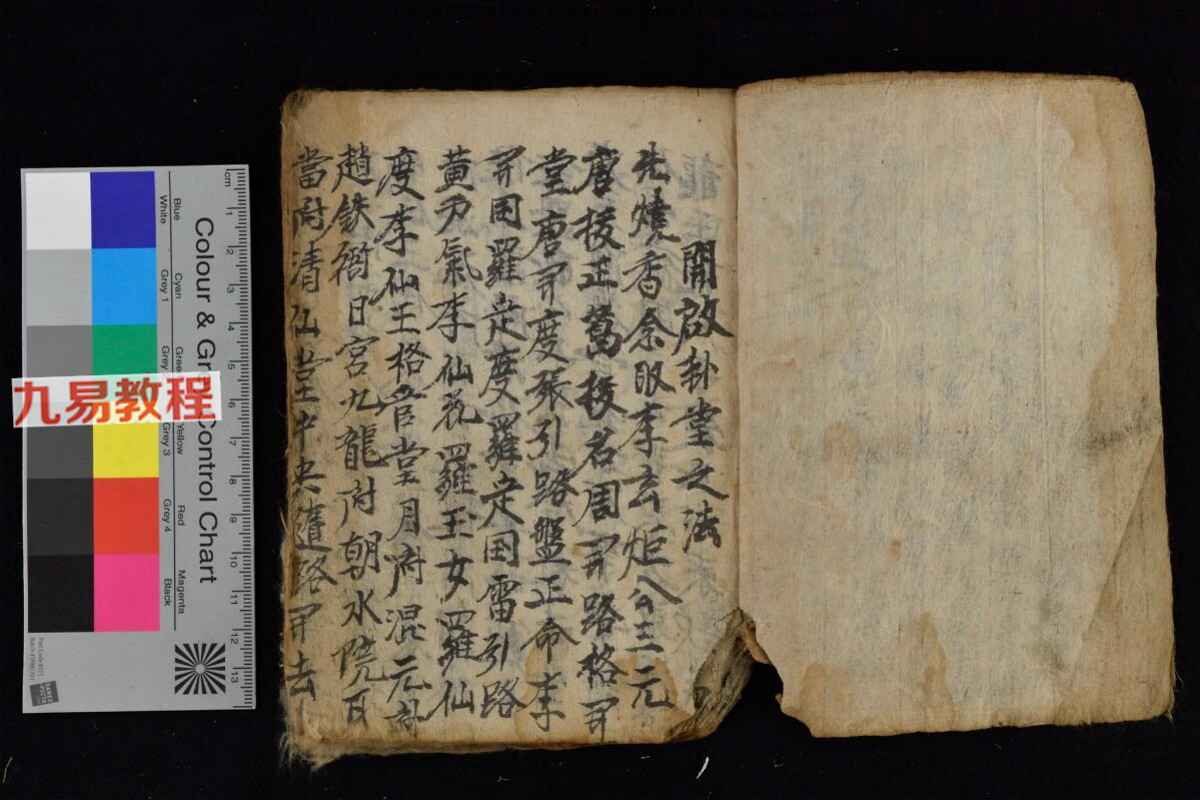 開啟卦堂之法
先燒香奈眼李玄炬八公三元
唐授正萬授名周開路格開
堂唐開度張引路盤正命李
開田羅定度羅定田雷引路
黃刃氣李仙花羅玉女羅仙
度李仙王格官堂月府混元
趙鉄衙日宮九龍府朝水院
當府清仙堂中央隨路開去
九易教程
Colour & Control Chart
cm 1 2 3 4 5 6 7 8 9 10 11 12 13
Blue Cyan Yellow Red Magenta
White Grey 1 Grey 3 Grey 4 Black